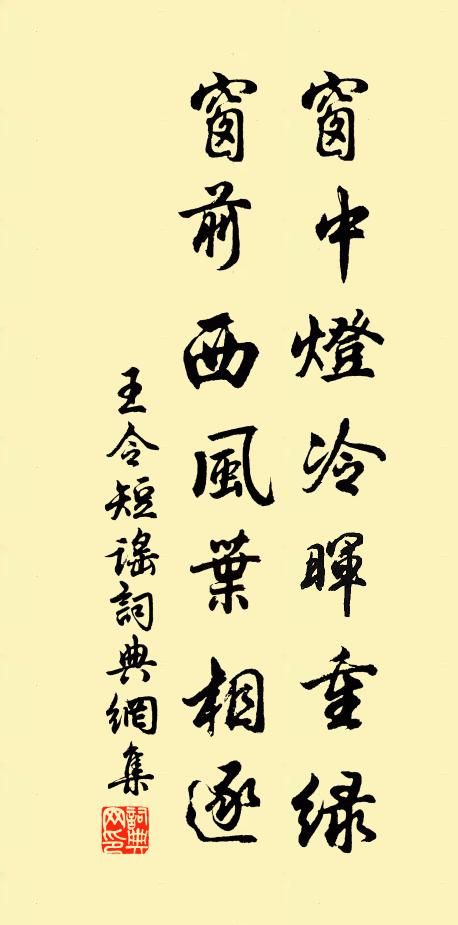 窗中燈冷暉重綠
窗前西風葉相逐
王令短謠詞典網集
詞典网印